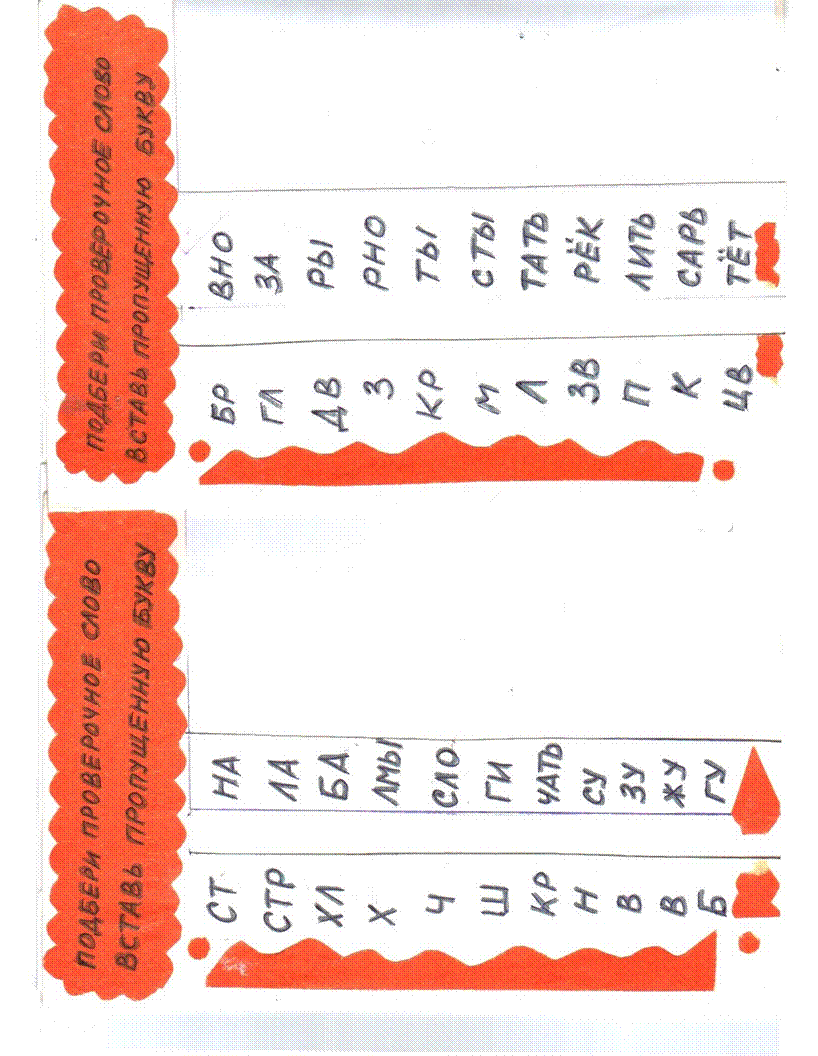 ПОДБЕРИ ПРОВЕРОЧНОЕ СЛОВО
ВСТАВЬ ПРОПУЩЕННУЮ БУКВУ
СТ НА
СТР ЛА
ХЛ БА
Х ЛМЫ
Ч СЛО
Ш ГИ
КР ЧАТЬ
Н СУ
В ЗУ
В ЖУ
Б ГУ
ПОДБЕРИ ПРОВЕРОЧНОЕ СЛОВО
ВСТАВЬ ПРОПУЩЕННУЮ БУКВУ
БР ВНО
ГЛ ЗА
ДВ РЫ
З РНО
КР ТЫ
М СТЫ
Л ТАТЬ
ЗВ РЁК
П ЛИТЬ
К САРЬ
ЦВ ТЁТ